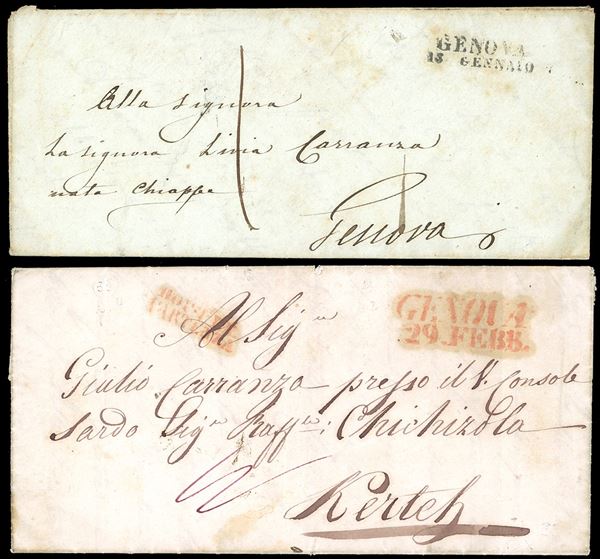 GENOVA
13 GENNAIO
Alla Signora
La Signora Livia Carranza
nata Chiappe
1
Genova
GENOVA
29. FEBB.
Al Sig.re
Giulio Carranza presso il V. Console
Sardo Sig.re Raff.le: Chichizola
Kertch